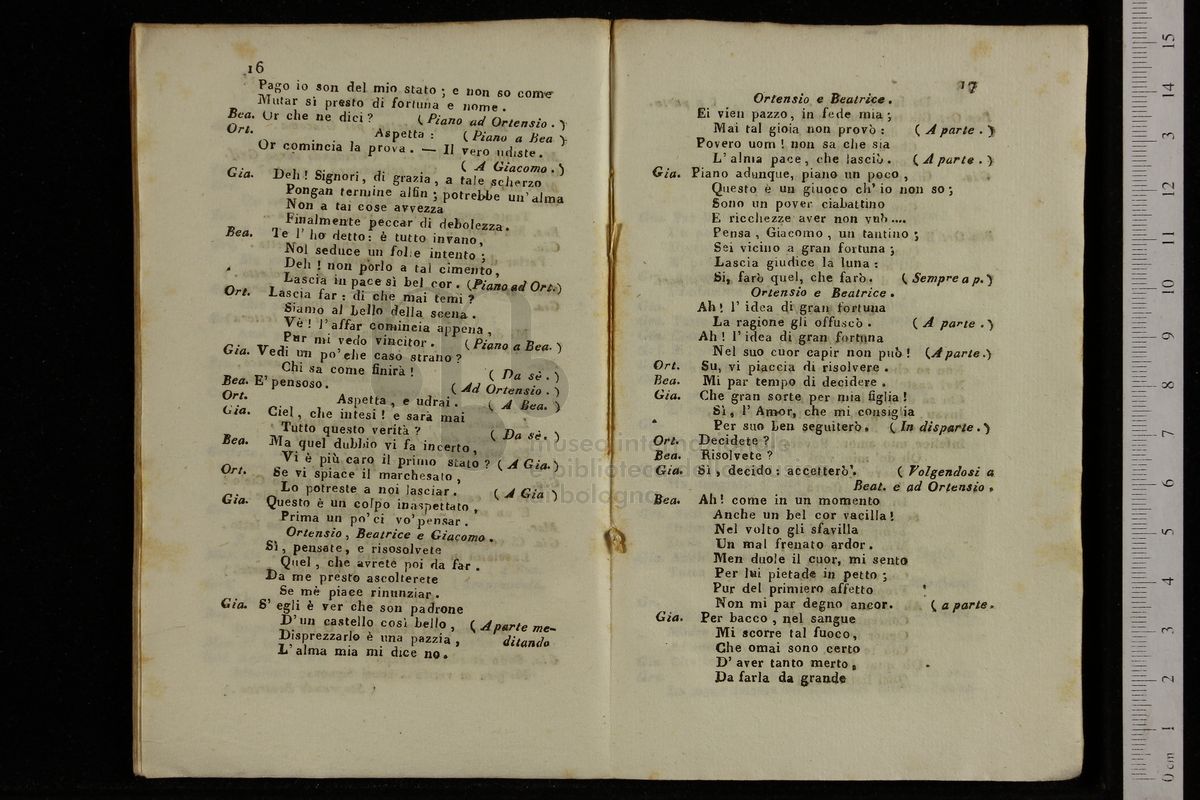 16
Pago io son del mio stato ; e non so come
Mutar sì presto di fortuna e nome .
Bea. Or che ne dici ? ( Piano ad Ortensio . )
Ort. Aspetta : ( Piano a Bea )
Or comincia la prova . — Il vero udiste .
( A Giacomo . )
Gia. Deh ! Signori, di grazia, a tale scherzo
Pongan termine alfin ; potrebbe un' alma
Non a tai cose avvezza
Finalmente peccar di debolezza .
Bea. Te l' ho detto : è tutto invano,
Nol seduce un folle intento ;
Deh ! non porlo a tal cimento,
Lascia in pace sì bel cor . (Piano ad Ort.)
Ort. Lascia far : di che mai temi ?
Siamo al bello della scena .
Vè ! l' affar comincia appena ,
Pur mi vedo vincitor . ( Piano a Bea. )
Gia. Vedi un po' che caso strano ?
Chi sa come finirà ! ( Da sè . )
Bea. E' pensoso . ( Ad Ortensio . )
Ort. Aspetta , e udrai . ( A Bea. )
Gia. Ciel , che intesi ! e sarà mai
Tutto questo verità ? ( Da sè . )
Bea. Ma quel dubbio vi fa incerto,
Vi è più caro il primo stato ? ( A Gia. )
Ort. Se vi spiace il marchesato ,
Lo potreste a noi lasciar . ( A Gia )
Gia. Questo è un colpo inaspettato ,
Prima un po' ci vo' pensar .
Ortensio , Beatrice e Giacomo .
Sì , pensate, e risosolvete
Quel , che avrete poi da far .
Da me presto ascolterete
Se mè piace rinunziar .
Gia. S' egli è ver che son padrone
D' un castello così bello , ( A parte me-
Disprezzarlo è una pazzia , ditando
L' alma mia mi dice no .
17
Ortensio e Beatrice .
Ei vien pazzo, in fede mia ;
Mai tal gioia non provò : ( A parte . )
Povero uom ! non sa che sia
L' alma pace, che lasciò . ( A parte . )
Gia. Piano adunque, piano un poco ,
Questo è un giuoco ch' io non so ;
Sono un pover ciabattino
E ricchezze aver non vuò ....
Pensa , Giacomo , un tantino ;
Sei vicino a gran fortuna ;
Lascia giudice la luna :
Si, farò quel, che farò . ( Sempre a p. )
Ortensio e Beatrice .
Ah ! l' idea di gran fortuna
La ragione gli offuscò . ( A parte . )
Ah ! l' idea di gran fortuna
Nel suo cuor capir non può ! (A parte .)
Ort. Su, vi piaccia di risolvere .
Bea. Mi par tempo di decidere .
Gia. Che gran sorte per mia figlia !
Sì , l' Amor, che mi consiglia
Per suo ben seguiterò . ( In disparte . )
Ort. Decidete ?
Bea. Risolvete ?
Gia. Sì , decido : accetterò'. ( Volgendosi a
Beat. e ad Ortensio .
Bea. Ah ! come in un momento
Anche un bel cor vacilla !
Nel volto gli sfavilla
Un mal frenato ardor .
Men duole il cuor, mi sento
Per lui pietade in petto ;
Pur del primiero affetto
Non mi par degno ancor . ( a parte .
Gia. Per bacco , nel sangue
Mi scorre tal fuoco,
Che omai sono certo
D' aver tanto merto ,
Da farla da grande